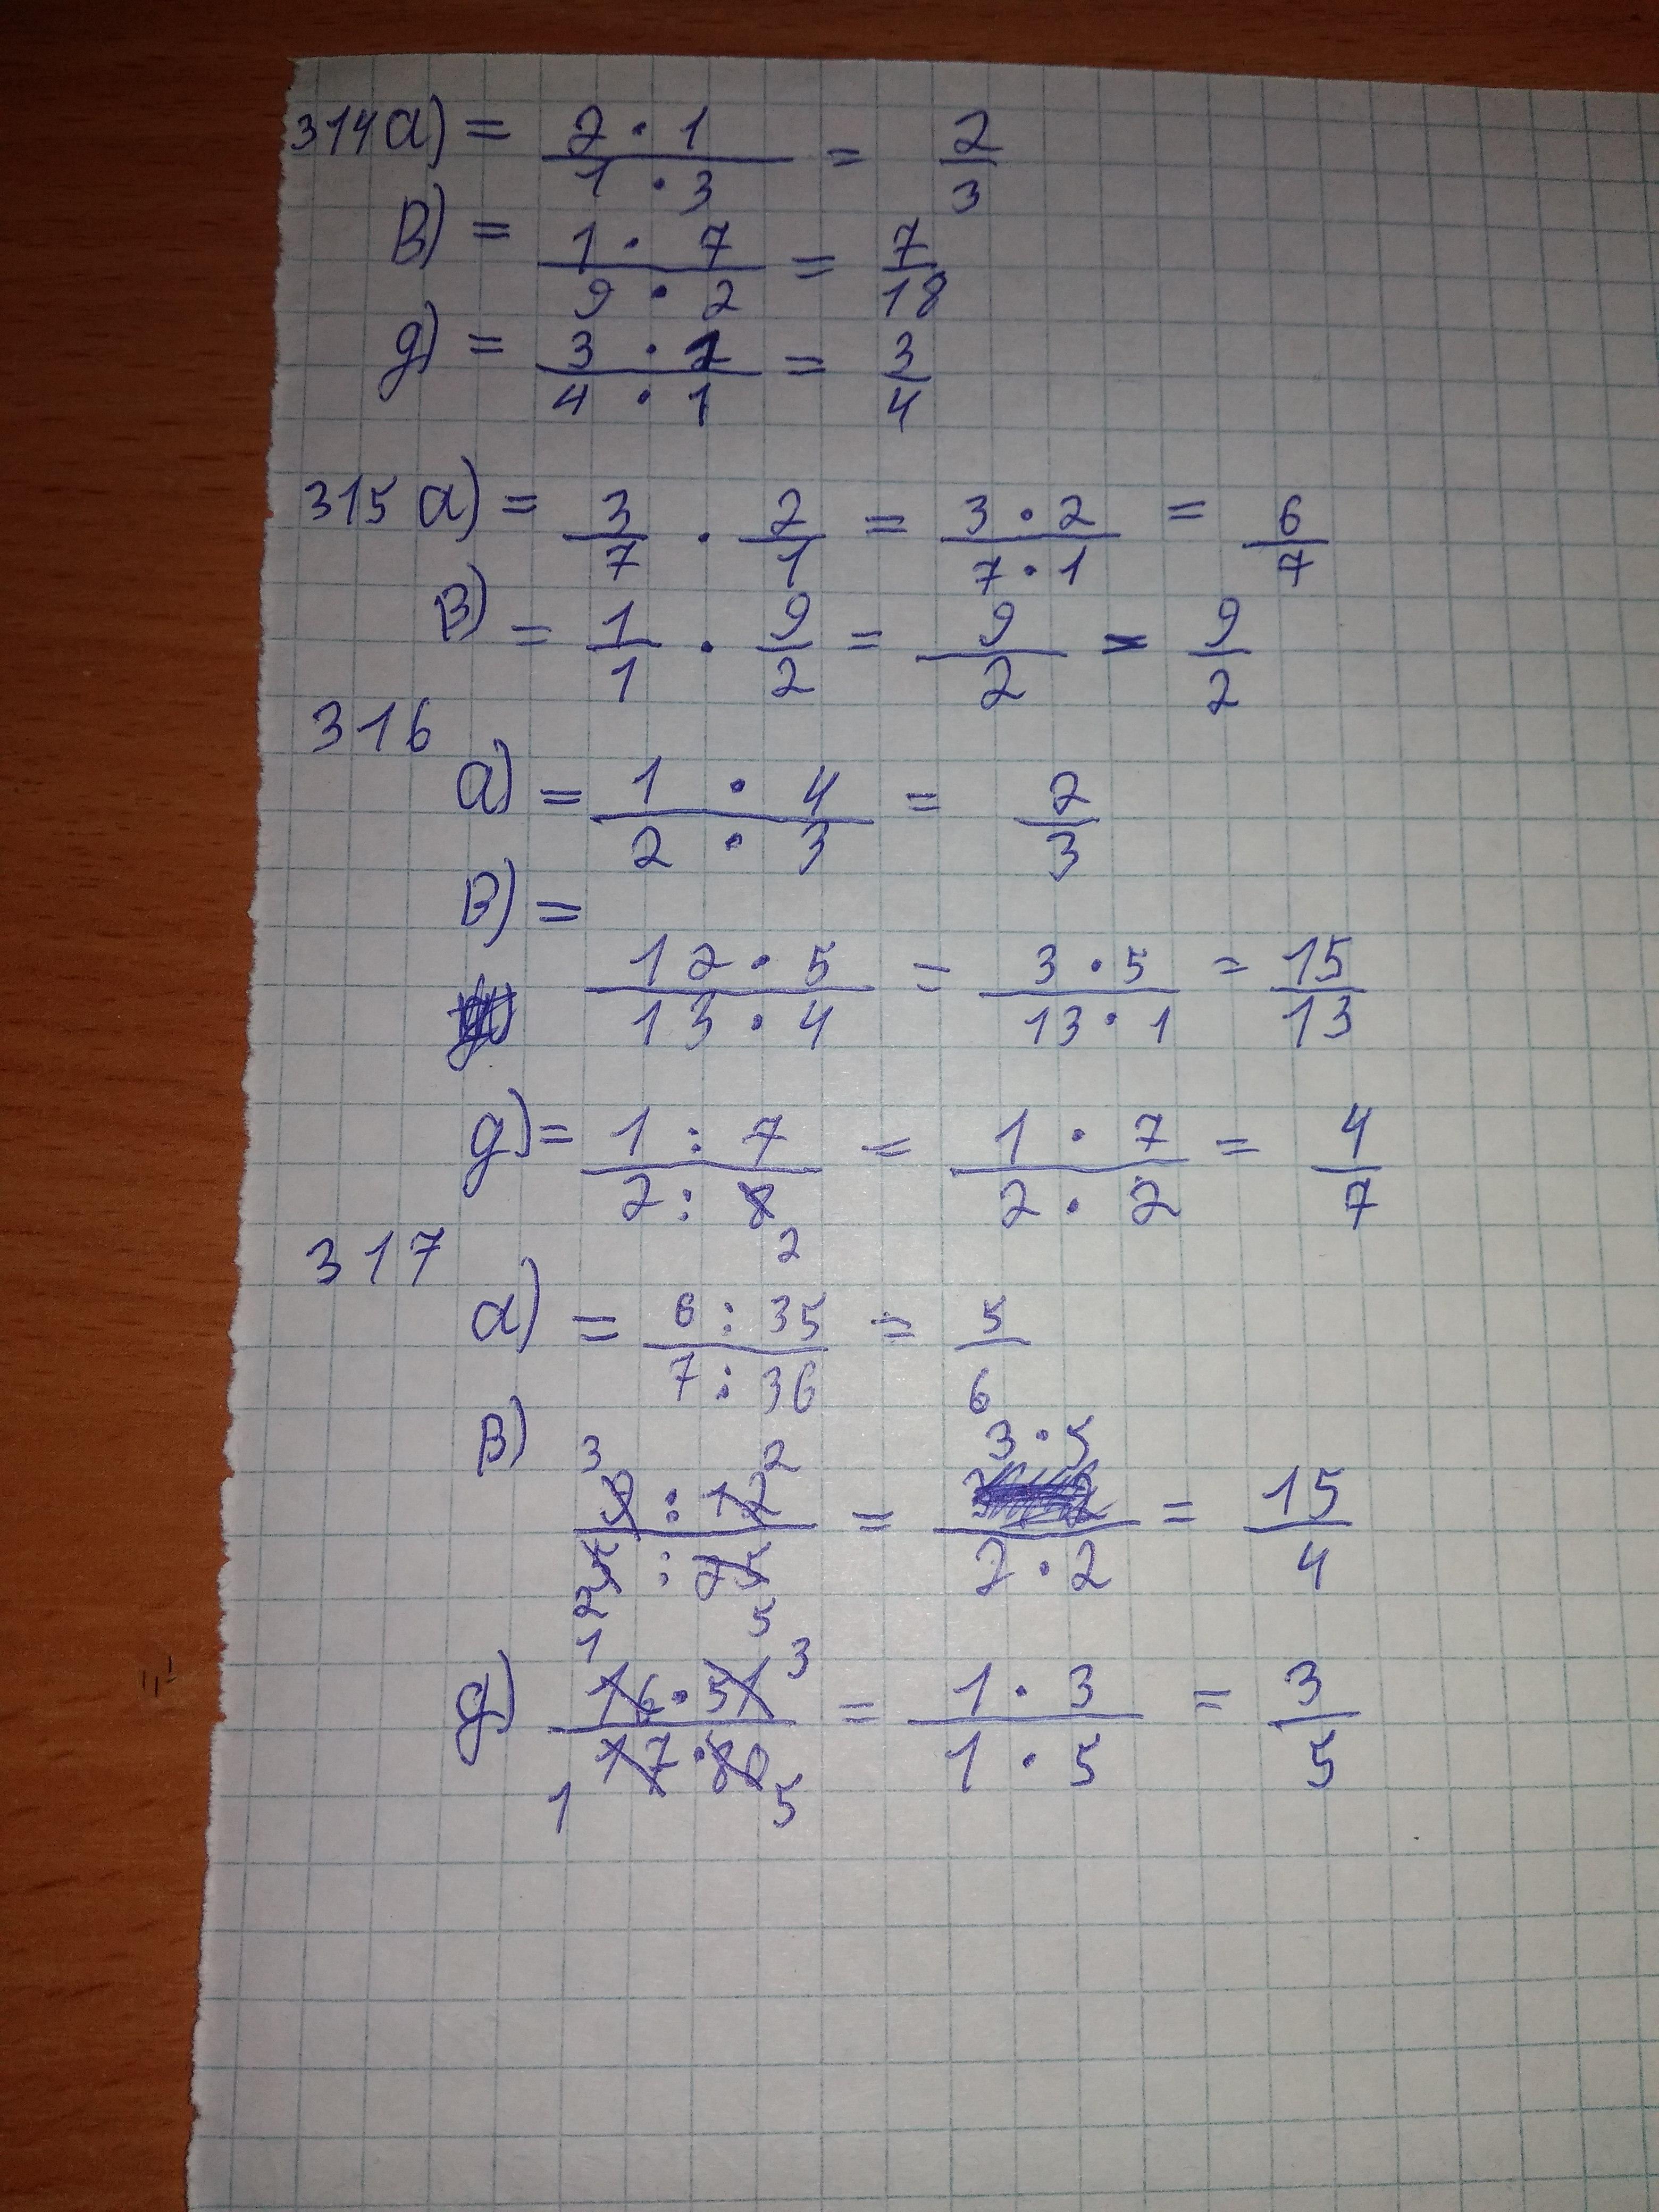 314 а) = 2 · 1 / 1 · 3 = 2/3
в) = 1 · 7 / 9 · 2 = 7/18
д) = 3 · 1 / 4 · 1 = 3/4
315 а) = 3/7 · 2/1 = 3 · 2 / 7 · 1 = 6/7
в) = 1/1 · 9/2 = 9/2 = 9/2
316
а) = 1 · 4 / 2 · 3 = 2/3
в) =
12 · 5 / 13 · 4 = 3 · 5 / 13 · 1 = 15/13
д) = 1 : 7 / 2 : 8 2 = 1 · 7 / 2 · 2 = 4/7
317
а) = 6 : 35 / 7 : 36 = 5/6
в) 3 2 9 : 12 / : 25 2 5 = 3 · 5 / 2 · 2 = 15/4
д) 1 3 16 · 51 / 17 · 80 1 5 = 1 · 3 / 1 · 5 = 3/5